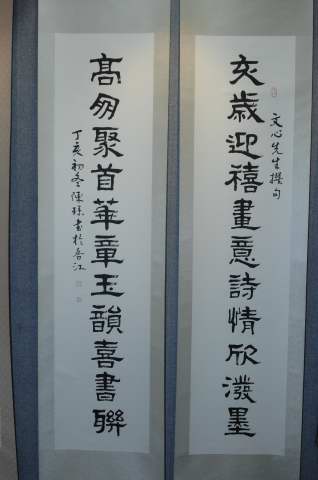 亥歲迎禧畫意詩情欣潑墨
文心先生撰句
高朋聚首華章玉韻喜書聯
丁亥初冬陳
書於晉江